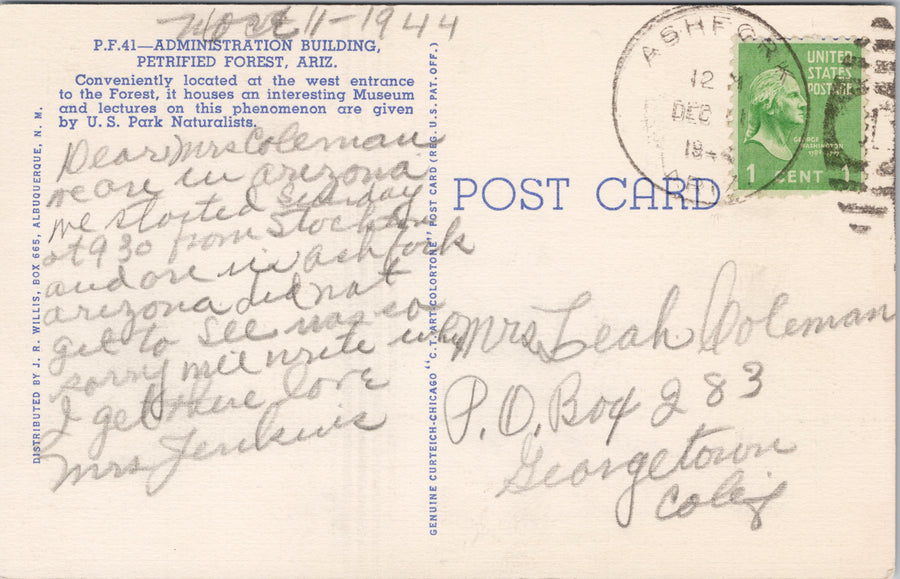 11-1944
P.F.41—ADMINISTRATION BUILDING,
PETRIFIED FOREST, ARIZ.
Conveniently located at the west entrance
to the Forest, it houses an interesting Museum
and lectures on this phenomenon are given
by U. S. Park Naturalists.
Dear Mrs Coleman
we are in arizona
we started Sunday
at 930 from Stockton
and are in ashfork
arizona did not
get to see was so
sorry will write when
I get there love
Mrs Jenkins
DISTRIBUTED BY J. R. WILLIS, BOX 665, ALBUQUERQUE, N. M.
GENUINE CURTEICH-CHICAGO "C.T. ART-COLORTONE" POST CARD (REG. U.S. PAT. OFF.)
POST CARD
ASHFORK
12 M
DEC 11
194
ARIZ
UNITED
STATES
POSTAGE
GEORGE
WASHINGTON
1 CENT 1
Mrs Leah Coleman
P.O. Box 283
Georgetown
Calif